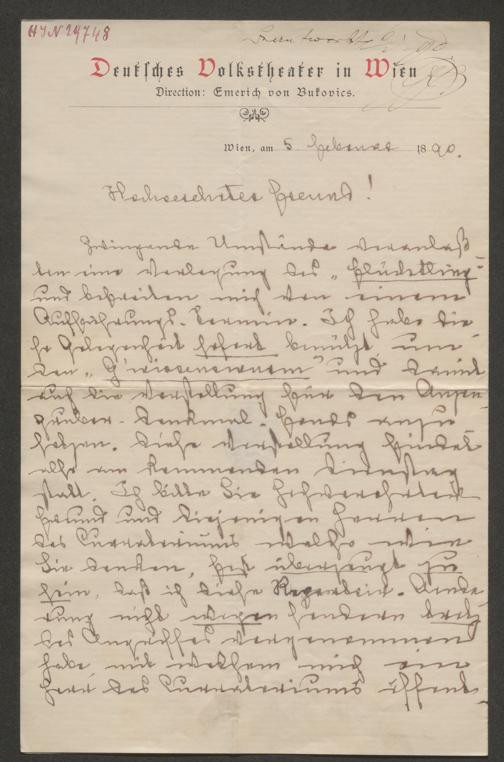 HIN 29748
Beantwortet
Deutsches Volkstheater in Wien
Direction: Emerich von Bukovics.
Wien, am 5 Februar 1890.
Hochgeehrter Freund!
Zwingende Umstände veranlaß-
ten eine Verlegung des „Flüchtling“
und befreiten mich von einem
Aufführungs-Termin. Ich habe die-
se Gelegenheit sofort benützt, um
den „G'wissenswurm“ und damit
auch die Vorstellung für den Anzen-
gruber-Denkmal-Fonds anzu-
setzen. Diese Vorstellung findet
also am kommenden Dienstag
statt. Ich bitte Sie hochverehrter
Freund und diejenigen Herren
des Curatoriums welche wie
Sie denken, fest überzeugt zu
sein, daß ich diese Repertoir-Ände-
rung nicht wegen sondern trotz
des Angriffes vorgenommen
habe mit welchem mich ein
Herr des Curatoriums öffent-